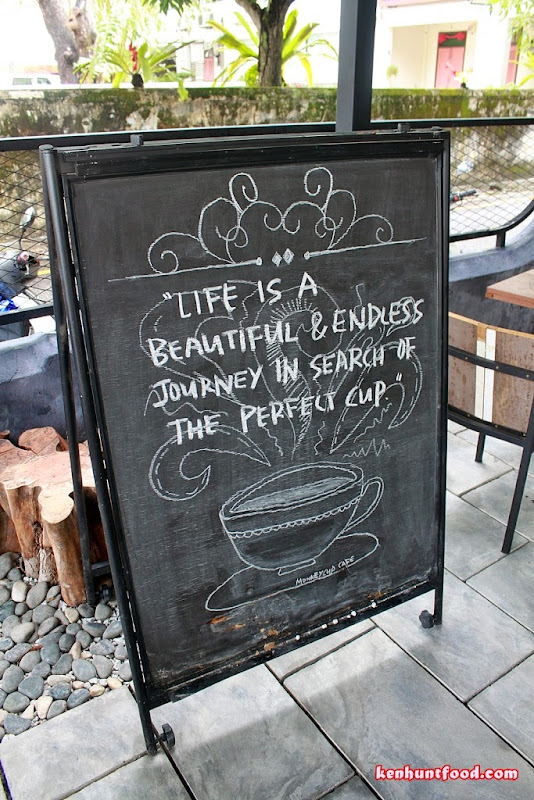 "LIFE IS A
BEAUTIFUL & ENDLESS
JOURNEY IN SEARCH OF
THE PERFECT CUP."
MONKEYCUP CAFE
kenhuntfood.com